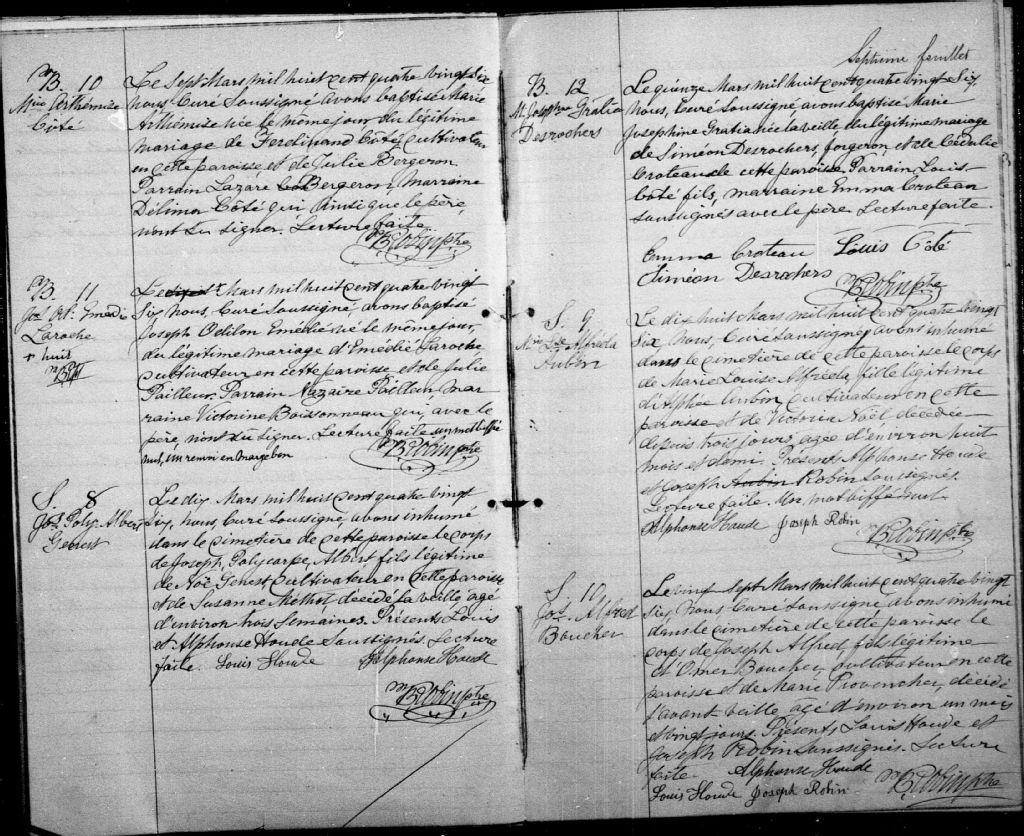 B. 10
Mie Arthémize
Côté
Le Sept Mars mil huit cent quatre vingt six
nous, Curé Soussigné avons baptisé Marie
Arthémize née le même jour du légitime
mariage de Ferdinand Côté, cultivateur
en cette paroisse, et de Julie Bergeron
Parrain Lazare Bergeron, marraine
Délima Côté qui ainsi que le père,
n'ont su signer. Lecture faite.
B. 11
Laroche
+ huit
Le Mars mil huit cent quatre vingt
Six, nous, Curé Soussigné, avons baptisé
Joseph Odilon Emédié né le même jour,
du légitime mariage d'Emédié Laroche
cultivateur en cette paroisse, et de Julie
Pailleur, Parrain Nazaire Pailleur, mar
raine Victorine Boissonneau qui, avec le
père, n'ont su signer. Lecture faite un mot biffé
nul, un renvoi en marge bon
S. 8
Jos. Poly. Albert
Genest
Le dix Mars mil huit cent quatre vingt
Six, nous, Curé Soussigné, avons inhumé
dans le cimetière de cette paroisse le corps
de Joseph, Polycarpe, Albert, fils légitime
de Noë Genest Cultivateur en cette paroisse
et de Susanne Methot décédé la veille agé
d'environ trois semaines. Présents Louis
et Alphonse Houde Soussignés Lecture
faite. Louis Houde Alphonse Houde
Septième feuillet
B. 12
M. Josephne Gratia
Desrochers
Le quinze Mars mil huit cent quatre vingt Six
Nous, Curé Soussigné avons baptisé Marie
Josephine Gratia née la veille du légitime mariage
de Siméon Desrochers, forgeron et de Cédulie
Croteau de cette paroisse, Parrain, Louis
Côté fils, marraine Emma Croteau
soussignés avec le père Lecture faite.
Emma Croteau Louis Côté
Siméon Desrochers
S. 9
Mie Lse Alfréda
Aubin
Le dix huit Mars mil huit cent quatre vingt
Six, Nous, Curé Soussigné, avons inhumé
dans le cimetière de cette paroisse le corps
de Marie Louise Alfréda, fille légitime
d'Alphée Aubin, Cultivateur en cette
paroisse et de Victoria Noël, décédée
depuis trois jours, agée d'environ huit
mois et demi. Présents Alphonse Houde
et Joseph Aubin Robin Soussignés.
Lecture faite. Un mot biffé nul
Alphonse Houde Joseph Robin
S. 10
Jos. Alfred
Boucher
Le vingt Sept Mars mil huit cent quatre vingt
Six, Nous Curé Soussigné avons inhumé
dans le cimetière de cette paroisse le
corps de Joseph Alfred, fils légitime
d'Omer Boucher, cultivateur en cette
paroisse et de Marie Provencher, décédé
l'avant veille agé d'environ un mois
et vingt jours. Présents, Louis Houde et
Joseph Robin Soussignés. Lecture
faite. Alphonse Houde
Louis Houde Joseph Robin